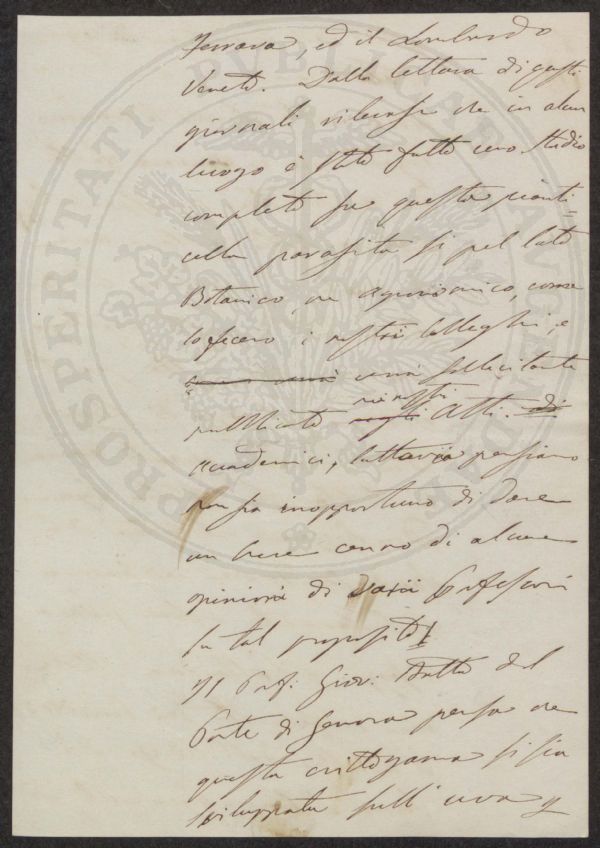 Ferrara, ed il Lombardo
Veneto. Dalla lettura di questi
giornali rilevasi che in alcun
luogo è stato fatto uno studio
completo su questa pianti=
cella parassita si pel lato
Botanico, che agronomico, come
lo fecero i nostri Colleghi, e
sollicitante
pubblicato nei nostri negli Atti di
accademici, tuttavia pensiamo
non sia inopportuno di dare
un breve cenno di alcune
opinioni di varii Professori
su tal proposito.
Il Prof. Giov: Batta del
Ponte di Genova pensa che
questa crittogama si sia
sviluppata sull'uva
PROSPERITATI PVBLICAE AVGENDAE